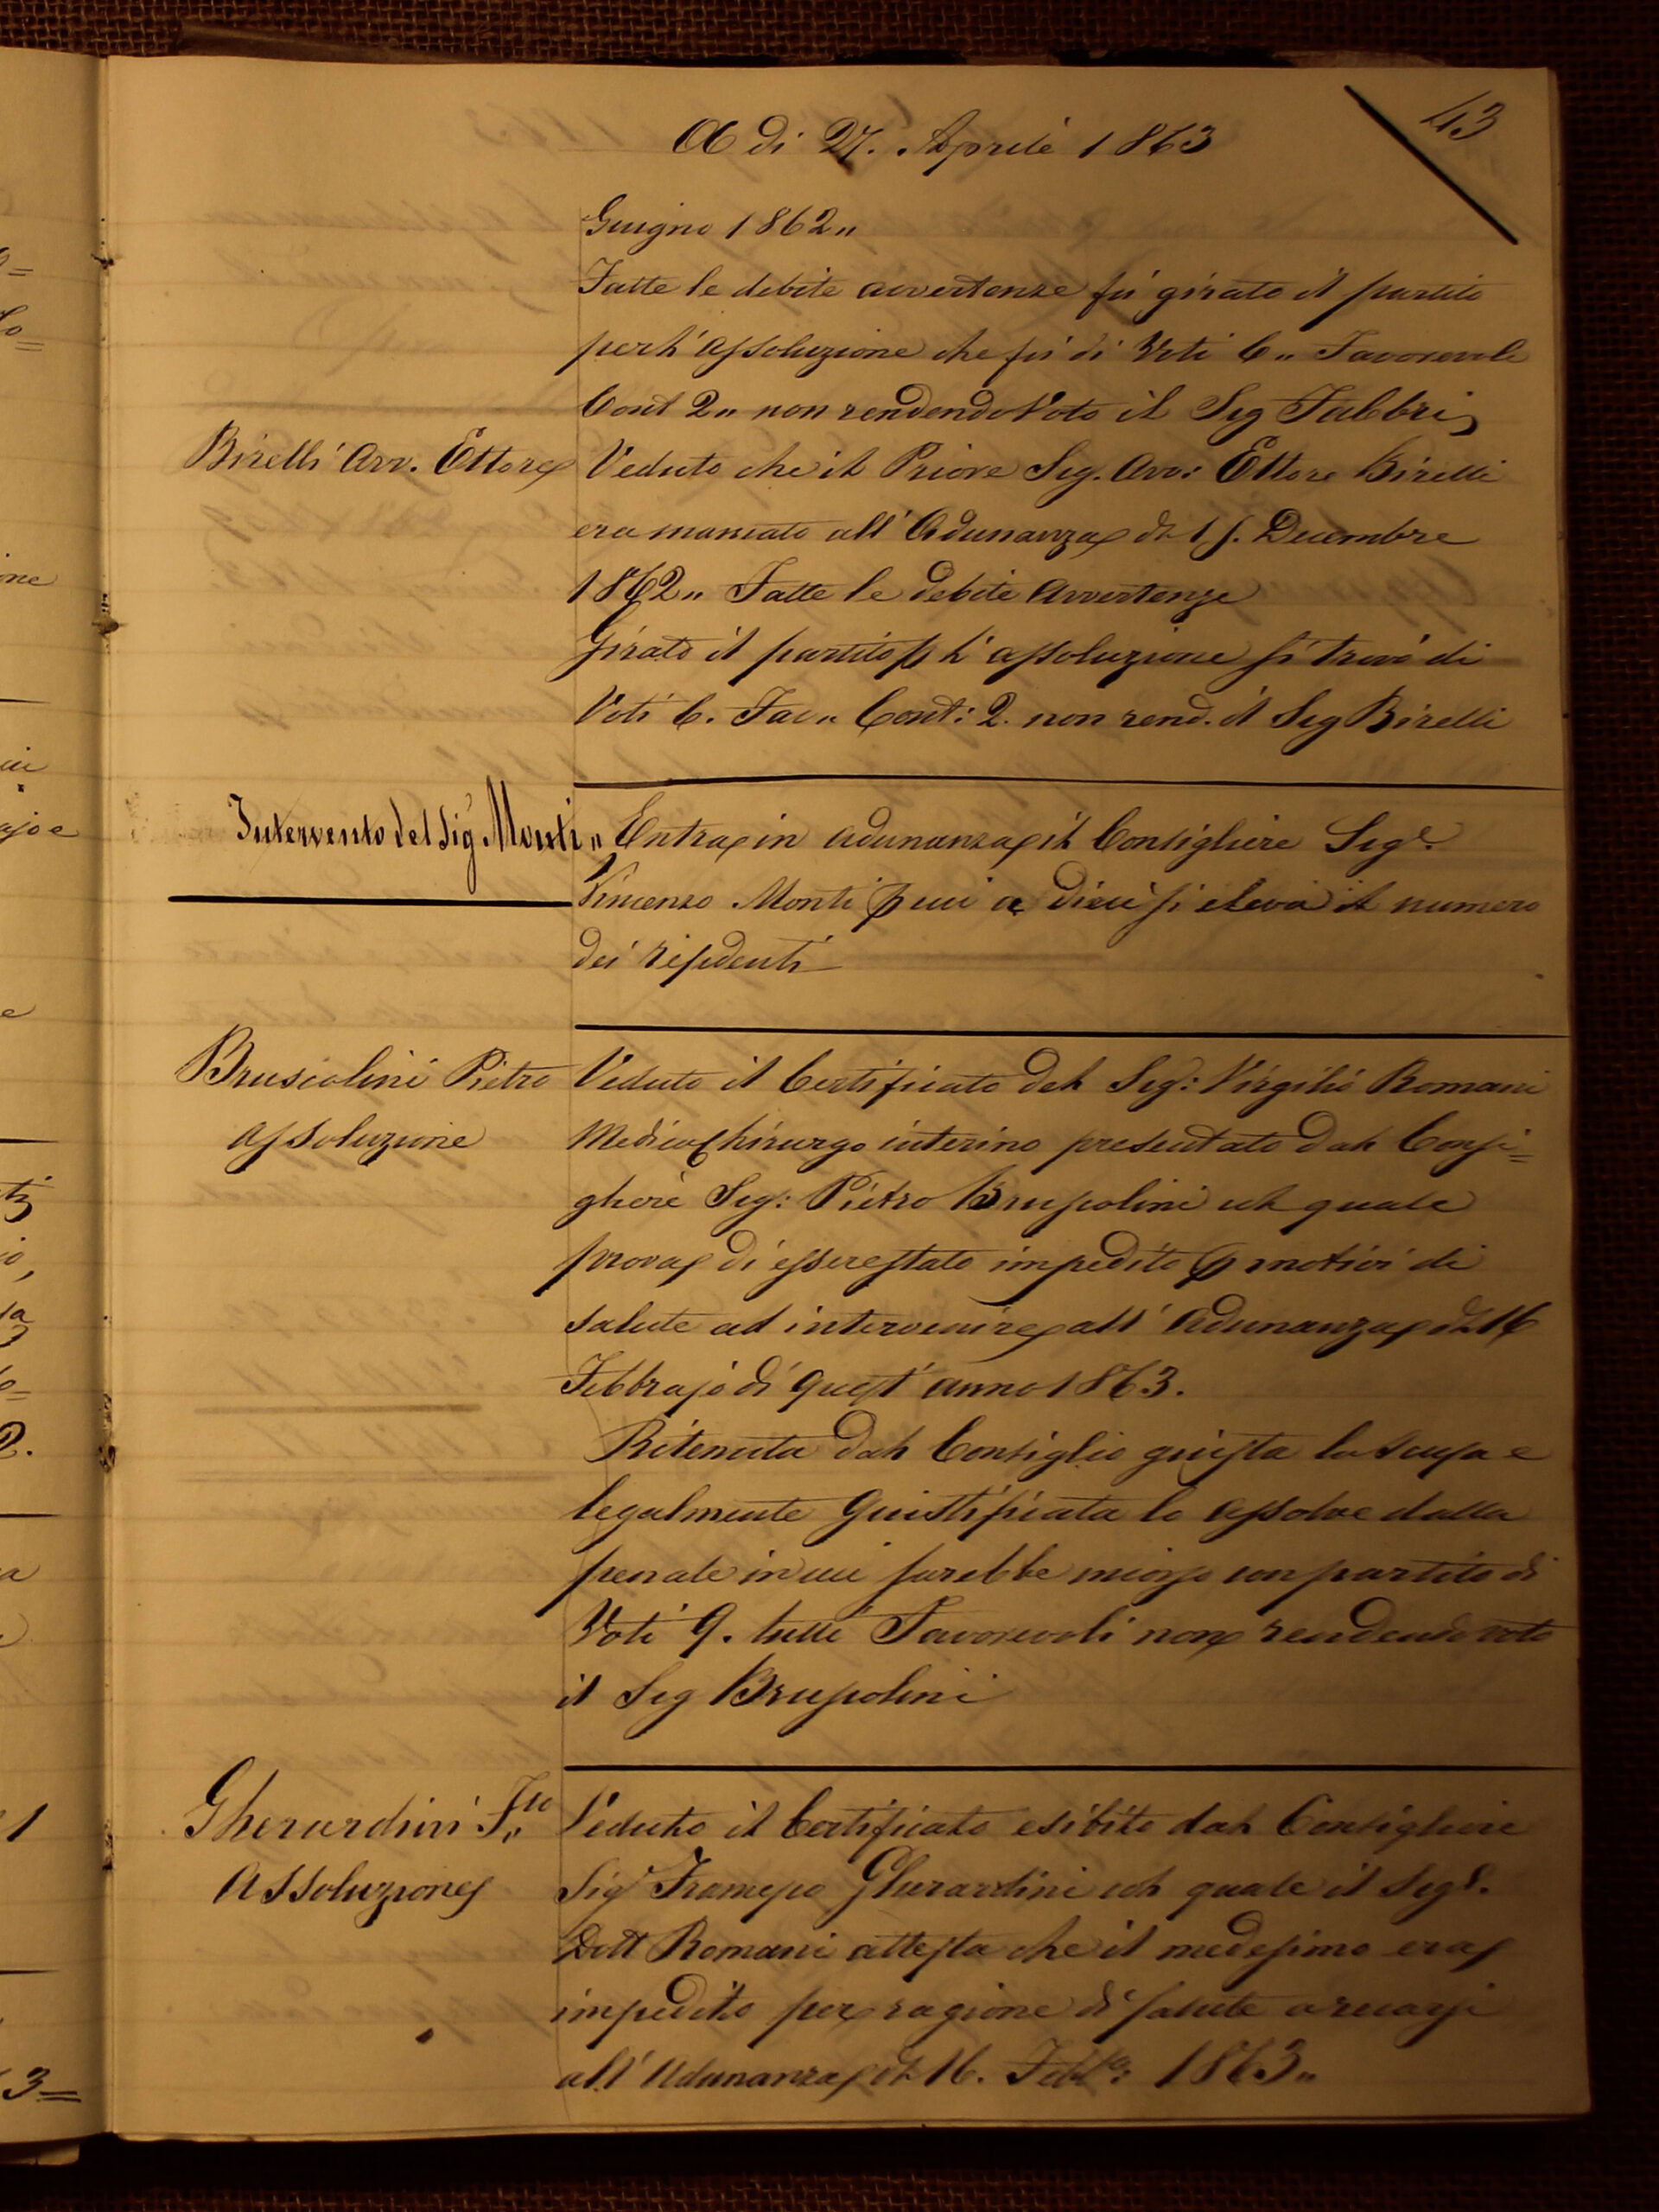 43
A di 27. Aprile 1863
Giugno 1862„
Fatte le debite avvertenze fù girato il partito
per l'assoluzione che fù di Voti 6„ Favorevoli
Cont 2„ non rendendo Voto il Sig Fabbri
Birelli Avv. Ettore
Veduto che il Priore Sig. Avv: Ettore Birelli
era mancato all'Adunanza del Decembre
1862„ Fatte le debite avvertenze
Girato il partito p l'assoluzione si trovò di
Voti 6. Fav„ Cont: 2. non rend. il Sig Birelli
Intervento del Sig Monti„
Entra in adunanza il Consigliere Sigr.
Vincenzo Monti p cui a dieci si eleva il numero
dei risedenti
Brusiolini Pietro
assoluzione
Veduto il Certificato del Sig: Virgilio Romani
Medico Chirurgo interino presentato dal Consi=
gliere Sig: Pietro col quale
prova di essere stato impedito p motivi di
salute ad intervenire all'Adunanza del 16
Febbrajo di quest'anno 1863.
Ritenuta dal Consiglio giusta la scusa e
legalmente giustificata lo assolve dalla
penale in cui sarebbe incorso con partito di
Voti 9. tutti Favorevoli non rendendo voto
il Sig
Gherardini Fco„
Assoluzione
Veduto il Certificato esibito dal Consigliere
Sigr Francesco Gherardini col quale il Sigr.
Dott Romani attesta che il medesimo era
impedito per ragione di salute a recarsi
all'Adunanza del 16. Febbo: 1863„